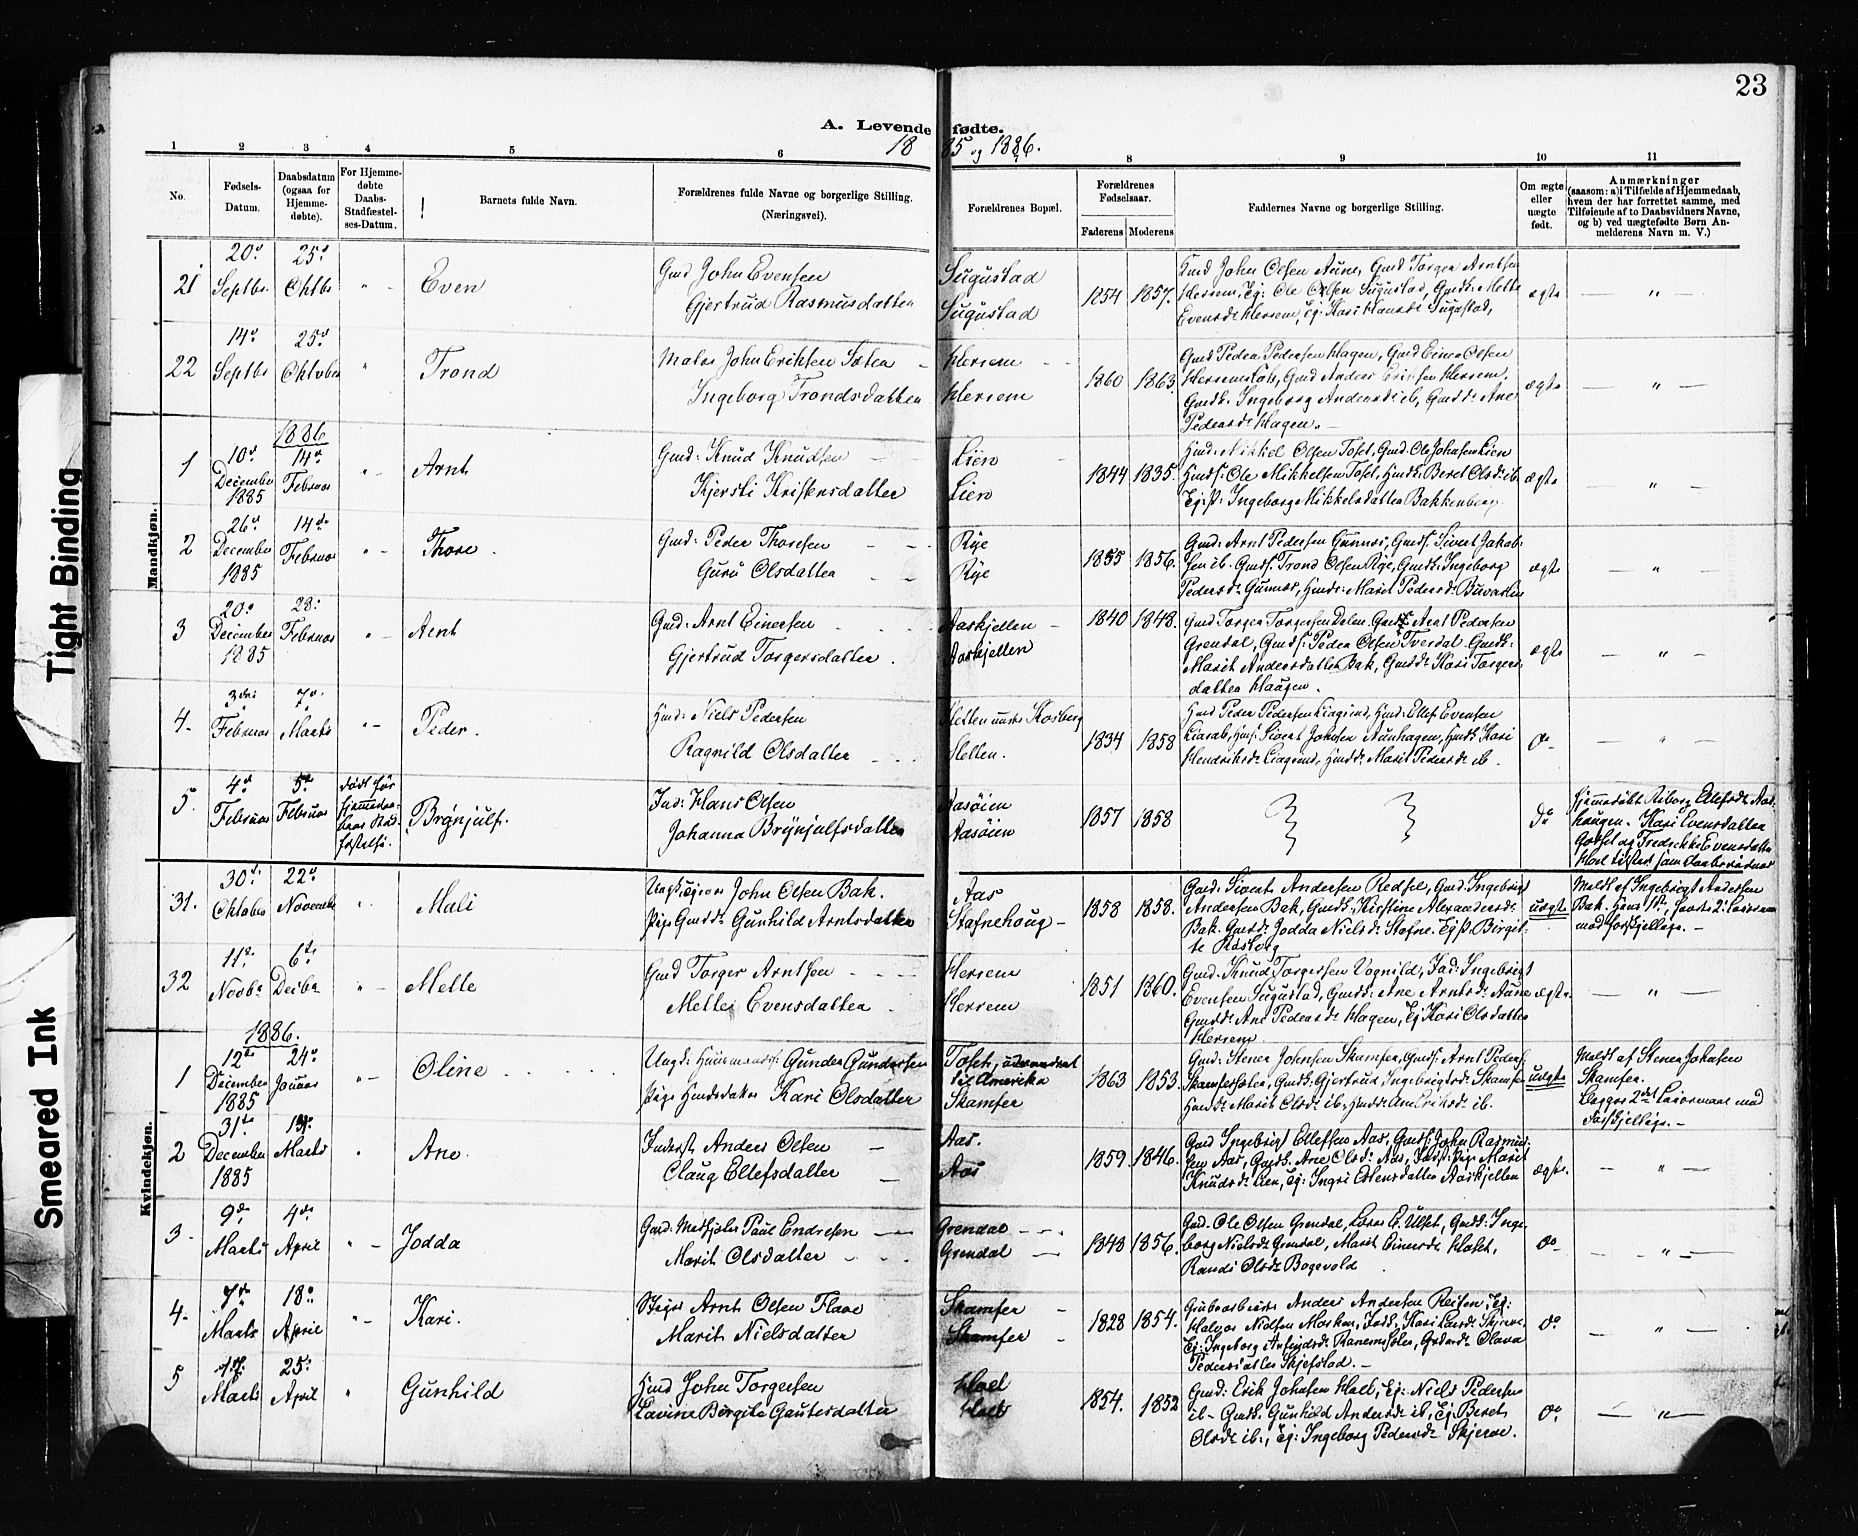 23
A. Levende fødte.
1885 og 1886.
1 2 3 4 5 6 8 9 10 11
No.
Fødsels-Datum.
Daabsdatum (ogsaa for Hjemme-døbte).
For Hjemme-døbte Daabs-Stadfæstel-ses-Datum.
Barnets fulde Navn.
Forældrenes fulde Navne og borgerlige Stilling. (Næringsvei).
Forældrenes Bopæl.
Forældrenes Fødselsaar.
Faderens Moderens
Faddernes Navne og borgerlige Stilling.
Om ægte eller uægte født.
Anmærkninger
(saasom: a) i Tilfælde af Hjemmedaab, hvem der har forrettet samme, med Tilføiende af to Daabsvidners Navne, og b) ved uægtefødte Børn An-melderens Navn m. V.)
Tight Binding
Smeared Ink
Mandkjøn.
21 20d Septbr 25d Oktbr " - Even
Gmd John Evensen
Gjertrud Rasmusdatter
Sugustad
Sugustad
1854 1857.
Gmd John Olsen Aune, Gmd Torger Arntsen
Herrem, Ej: Ole Olsen Sugustad, Gmdk: Mette
Evensdr Herrem, Ej: Kari Hansdr Sugustad,
ægte — " —
22 14d Septbr 25d Oktober " Trond
Maler John Eriksen Sæter
Ingeborg Trondsdatter
Herrem
Herrem
1860 1863
Gmd Peder Pedersen Hagen, Gmd Einer Olsen
Herremsløk, Gmd Anders Eriksen Herrem,
Gmdk. Ingeborg Andersdr ib, Gmdd. Ane
Pedersdr Hagen. —
ægte — " —
1886
1 10d December 1885 14d Februar " - Arnt
Gmd: Knud Knudsen
Kjersti Kristensdatter
Lien
Lien
1844 1835.
Hmd: Mikkel Olsen Toset, Gmd Ole Johnsen Lien
Hmds: Ole Mikkelsen Toset, Hmdk: Beret Olsdr ib
Ej:P: Ingeborg Mikkelsdatter Bakkenberg
ægte — " —
2 26d December 1885 14de Februar " - Thore.
Gmd: Peder Thoresen
Guru Olsdatter
Rye
Rye
1855 1856.
Gmd: Arnt Pedersen Gunnes, Gmds: Sivert Jakob-
sen ib. Gmds: Trond Olsen Rye, Gmdk: Ingeborg
Pedersdr Gunnes, Hmdd: Marit Pedersdr Buvarlien
ægte — " —
3 20d December 1885 28: Februar " - Arnt
Gmd: Arnt Einersen
Gjertrud Torgersdatter.
Aaskjellen
Aaskjellen
1840 1848.
Gmd Torger Torgersen Delen. Gmds: Arnt Pedersen
Grendal, Gmds: Peder Olsen Tverdal Gmdk:
Marit Andersdatter Bak, Gmdd: Kari Torgers
datter Haagen.
ægte — " —
4. 3die Februar 7d Marts " - Peder.
Hmd: Niels Pedersen
Ragnild Olsdatter
Sletten under Stosberg
Sletten.
1834 1858
Hmd Peder Pedersen Liagrind, Hmd: Ellef Evensen
Liarab, Hmds: Sivert Johnsen Aunhagen, Hmdk Kari
Hendriksdr Liagrind, Hmdd: Marit Pedersdr ib.
do — " —
5. 4d Februar 5te Februar Brynjulf.
Ind: Hans Olsen
Johanna Brynjulfsdatter
Aasøien
Aasøien
1857 1858
do
Hjemmedøbt Ellefsdr Aas-
haugen. Kari Evensdatter
Fredrikke Evensdatter
som Daabsvidner
Kvindekjøn.
31. 30d Oktober 22d November " Mali
Ungk: Ejer John Olsen Bak.
Pige Gmdd: Gunhild Arntsdatter
Aas
Stafnehaug
1858 1858.
Gmd: Sivert Andersen Redsel, Gmd: Ingebrigt
Andersen Bak, Gmdk: Kirstine Alexandersdr
Bak. Gmdd: Jodda Nielsdr Stafne. Ej:P: Birgit-
te Kosberg
uægte
Meldt af Ingebrigt Andersen
Bak. Hans 1ste, hendes 2: Leiermaal
med forskjellige. —
32 11te Novbr 6te Decbr " - Mette
Gmd Torger Arntsen
Mette Evensdatter
Herrem
Herrem
1851 1860.
Gmd: Knud Torgersen Vognild, Ind: Ingebrigt
Evensen Sugustad, Gmdk: Ane Arntsdr Aune
Gmdd: Ane Pedersdr Hagen, Ej Kari Olsdatter
Herrem
ægte. — " —
1886.
1 12te December 1885 24d Januar " - Oline
Ungk: Gunder Gundersen
Pige Kari Olsdatter
Toset, udvandret
til Amerika
Skamfer
1863 1853.
Gmd: Stener Johnsen Skamfer, Gmds: Arnt Peders.
Skamfersæter, Gmdk: Gjertrud Ingebrigtsdr Skamfer
Hmdd: Marit Olsdr ib, Hmdd: Ane Eriksdr ib.
uægte
Meldt af Stener Johnsen
Skamfer.
Begges 2det Leiermaal med
Forskjellige. —
2 31te December 1885 Marts " Ane.
Inderst Anders Olsen
Claug Ellefsdatter
Aas.
Aas
1859 1846.
Gmd Ingebrigt Ellefsen Aas, Gmds: John Rasmus-
sen Aas, Gmdk. Ane Olsdr Aas, Pige Marit
Knudsdr Lien, Ej: Ingri Estensdatter Aaskjellen
ægte. — " —
3. 9de Marts 4de April " - Jodda
Gmd: Paul Endresen
Marit Olsdatter
Grendal
Grendal
1843 1856.
Gmd. Ole Olsen Grendal, Lærer E. Ulset, Gmdk: Inge-
borg Nielsdr Grendal, Marit Einersdr Holset,
Randi Olsdr Bogevold
do — " —
4. 7de Marts 18d April " - Kari.
Skjer Arnt Olsen Flaae
Marit Nielsdatter
Skamfer
Skamfer
1828 1854.
Grubearbeider Anders Andersen Reiten, Ej:
Halvor Nielsen Morken, Kari Larsdr Skjerve
Ej: Ingeborg Arnfinsdr Ranemsæter, Olava
Pedersdatter Skjefstad. —
do — " —
5 Marts 25: April " Gunhild
Hmd John Torgersen
Lavine Birgite Gautesdatter
Hoel
Hoel
1854. 1852
Gmd: Erik Johnsen Hoel, Ej: Niels Pedersen
ib - Gmdk. Gunhild Andersdr ib, Ej: Beret
Olsdr ib., Ej: Ingeborg Pedersdr Skjerve.
do — " —